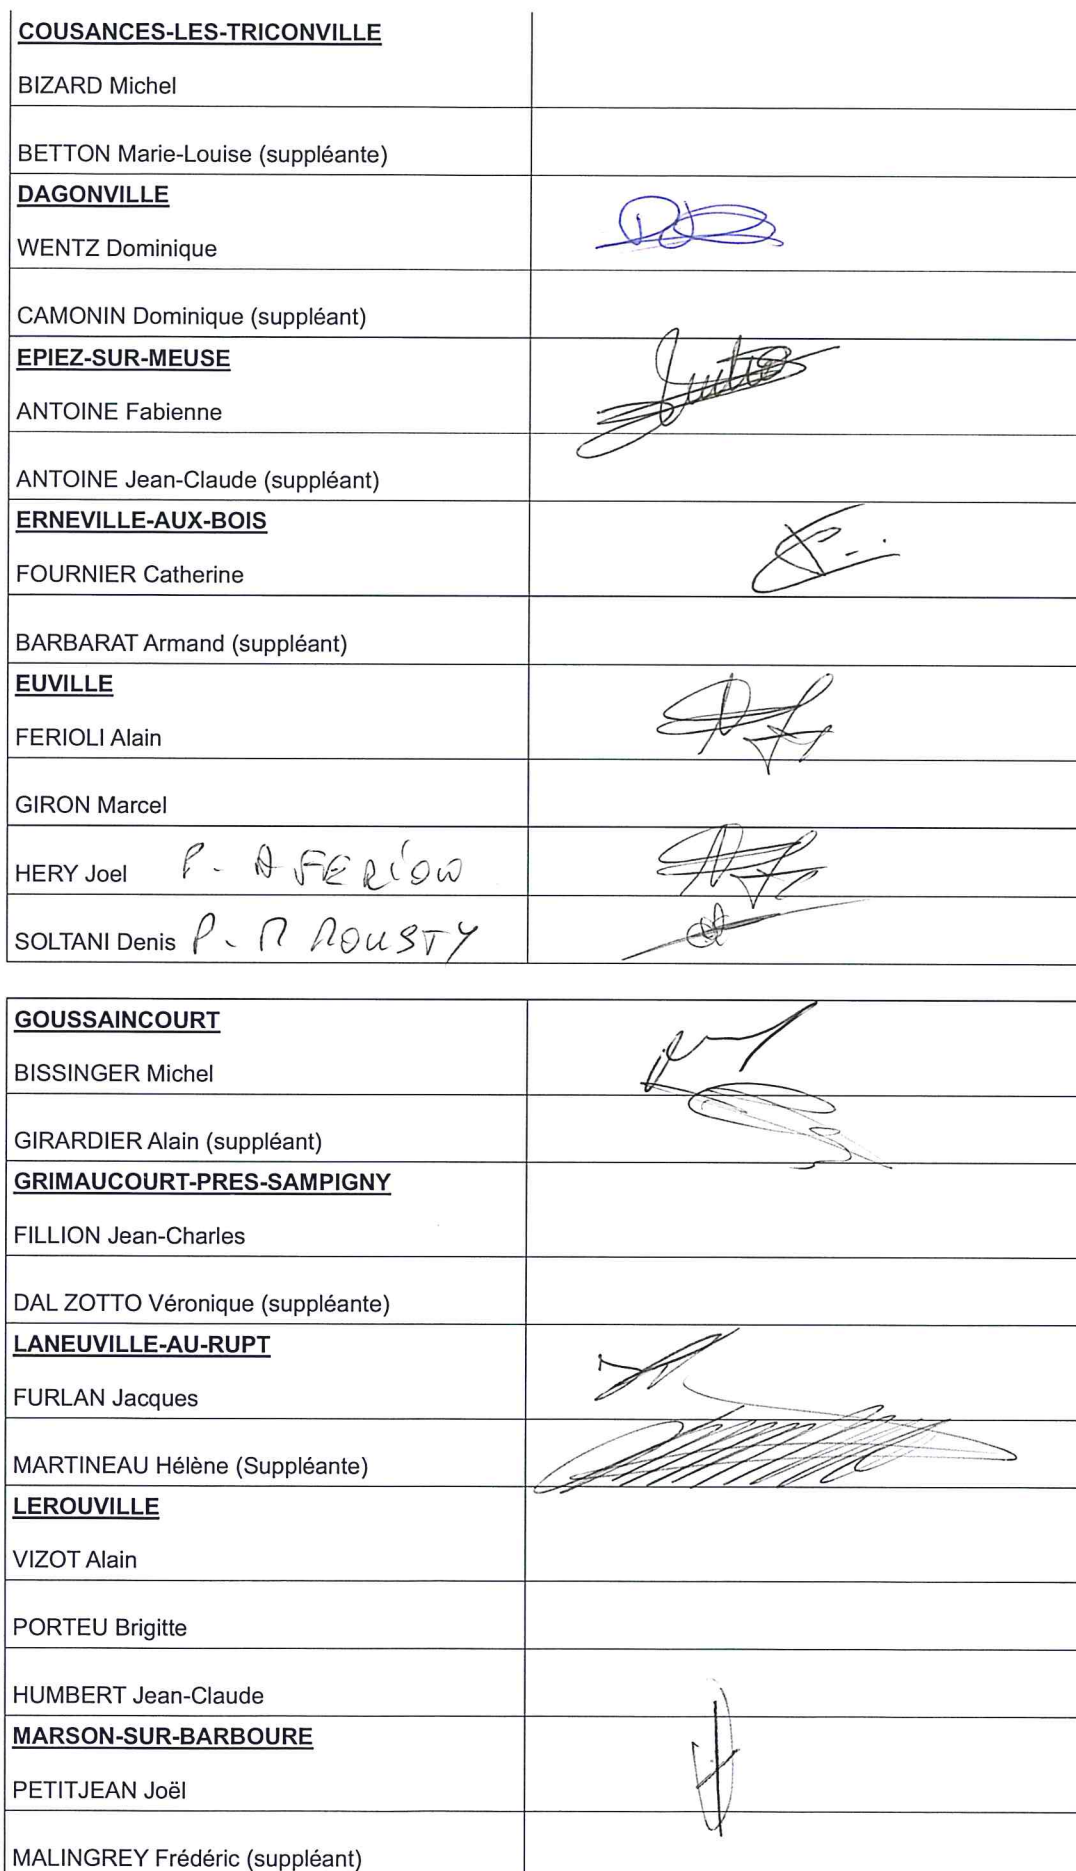 COUSANCES-LES-TRICONVILLE
BIZARD Michel
BETTON Marie-Louise (suppléante)
DAGONVILLE
WENTZ Dominique
CAMONIN Dominique (suppléant)
EPIEZ-SUR-MEUSE
ANTOINE Fabienne
ANTOINE Jean-Claude (suppléant)
ERNEVILLE-AUX-BOIS
FOURNIER Catherine
BARBARAT Armand (suppléant)
EUVILLE
FERIOLI Alain
GIRON Marcel
HERY Joel P. A
SOLTANI Denis P.
GOUSSAINCOURT
BISSINGER Michel
GIRARDIER Alain (suppléant)
GRIMAUCOURT-PRES-SAMPIGNY
FILLION Jean-Charles
DAL ZOTTO Véronique (suppléante)
LANEUVILLE-AU-RUPT
FURLAN Jacques
MARTINEAU Hélène (Suppléante)
LEROUVILLE
VIZOT Alain
PORTEU Brigitte
HUMBERT Jean-Claude
MARSON-SUR-BARBOURE
PETITJEAN Joël
MALINGREY Frédéric (suppléant)